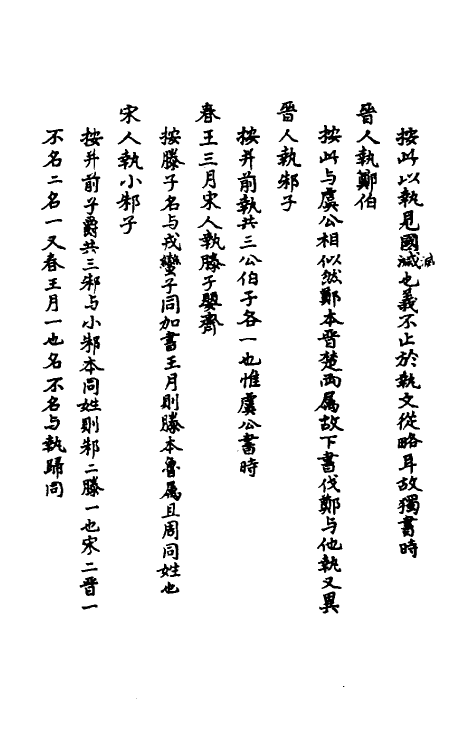 按此以執見國滅也義不止於執文從略耳故獨書時
晉人執鄭伯
按此与虞公相似然鄭本晉楚兩属故下書伐鄭与他執又異
晉人執邾子
按并前執共三公伯子各一也惟虞公書時
春王三月宋人執滕子嬰齊
按滕子名与戎蠻子同加書王月則滕本魯属且周同姓也
宋人執小邾子
按并前子爵共三邾与小邾本同姓則邾二滕一也宋二晉一
不名二名一又春王月一也名不名与執歸同